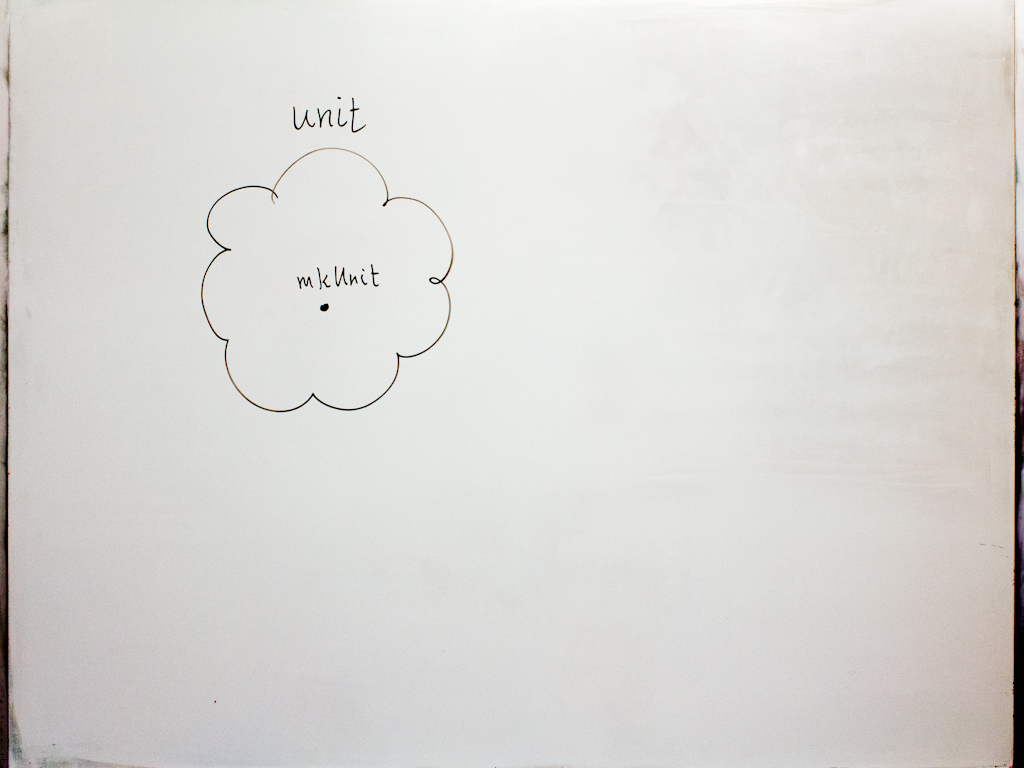 unit
mkUnit